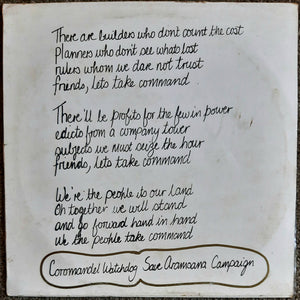 There are builders who don't count the cost
Planners who don't see whats lost
rulers whom we dare not trust
friends, lets take command
There'll be profits for the few in power
edicts from a company tower
subjects we must seize the hour
friends, lets take command
We're the people its our land
Oh together we will stand
and go forward hand in hand
we the people take command
Coromandel Watchdog Save Aramoana Campaign